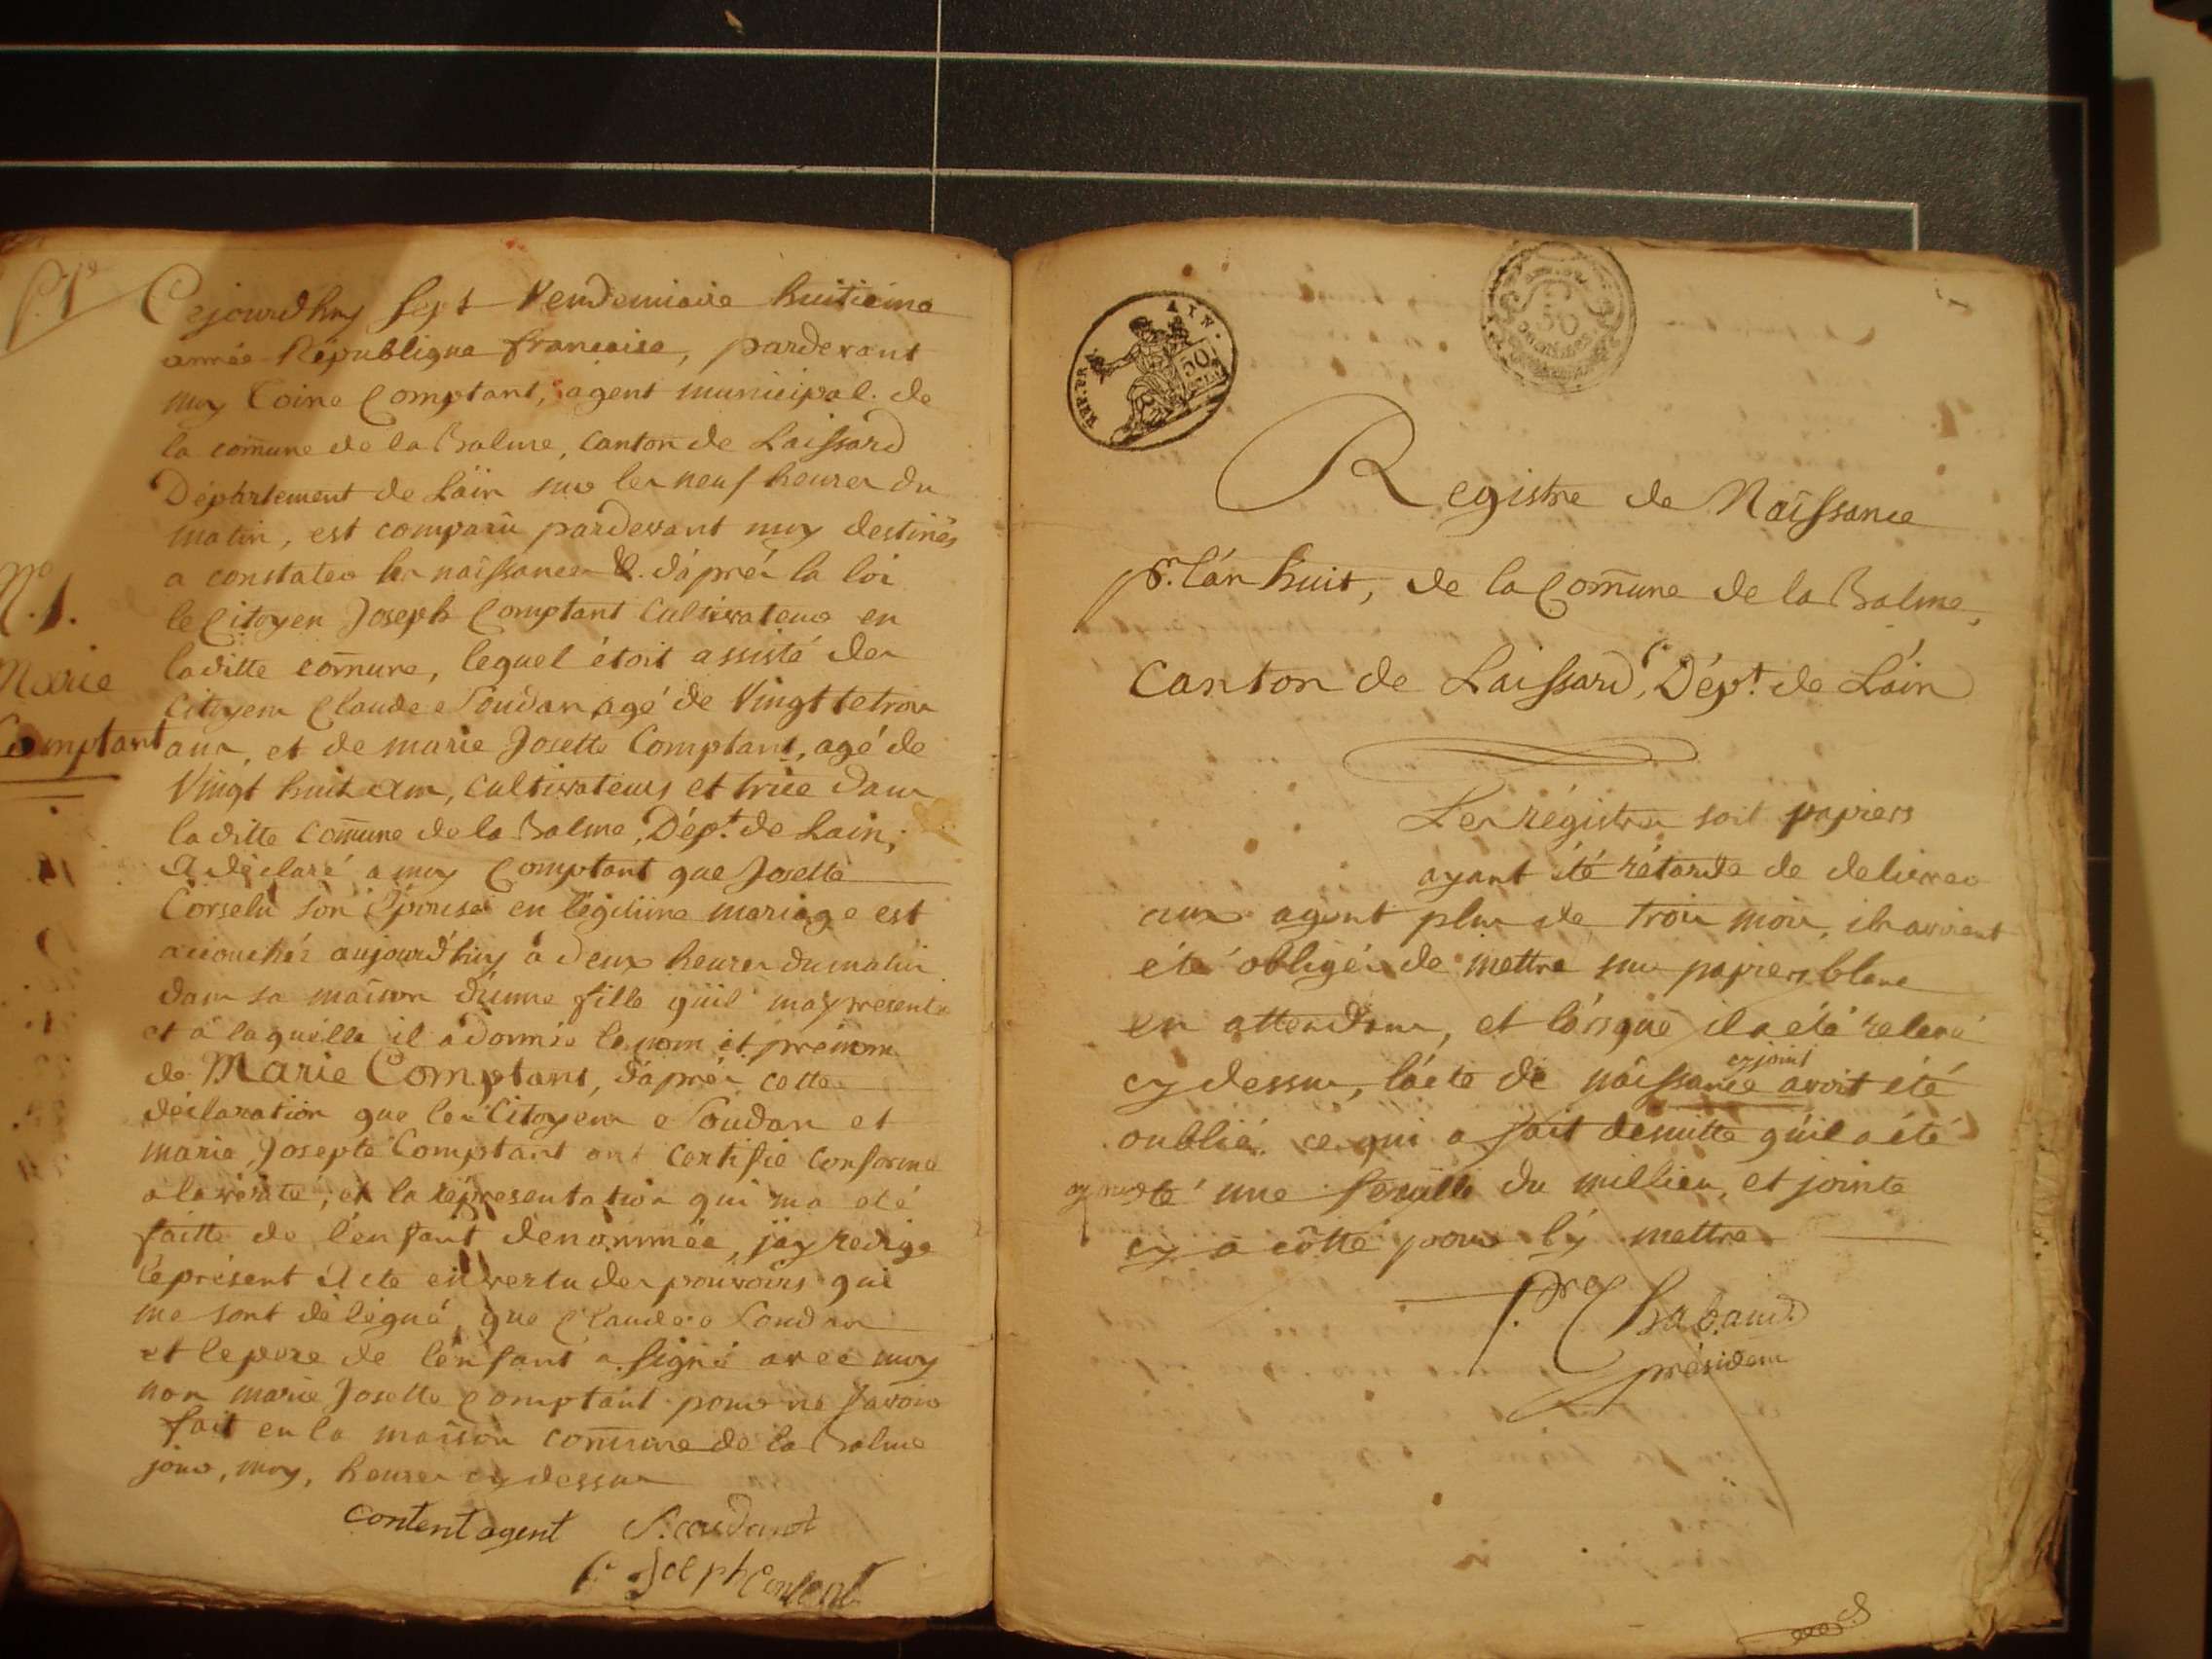 Cejourdhuy sept Vendemiaire huitieme
année République francaise, pardevant
moy Toine Comptant, agent municipal. de
la com̄une de la Balme, canton de Laissard
Département de Lain sur les neuf heures du
matin, est comparû pardevant moy destinés
a constater les naissances &. d'après la loi
le Citoyen Joseph Comptant Cultivateur en
laditte com̄une, lequel étoit assisté des
N.º 1.
Marie
Comptant
Citoyens Claude Soudan agé de Vingttetrois
ans, et de marie Josette Comptant, agé de
Vingt huit ans, cultivateurs et trice dans
laditte com̄une de la Balme, Dépt. de Lain,
A déclaré a moy Comptant que Josette
Corselu son Epouse en légitime mariage est
accouchés aujourd'huy a deux heures du matin
dans sa maison d'unne fille qu'il may presente
et a laquelle il a donnés le nom et prénom
de Marie Comptant, d'après cette
déclaration que les Citoyens Soudan et
marie Josepte Comptant ont certifie conforme
a la vérité, et la réprésentation qui ma eté
faitte de l'enfant dénommée, j'ay redigé
le présent Acte en vertu des pouvoirs qui
me sont délégué, que Claude Soudan
et le pere de l'enfant a signé avec moy
non marie Josette Comptant pour ne savoir
fait en la maison com̄une de la Balme
jour, moy, heures cy dessus
Content agent
Joseph Content
REP. FR
AYN.
50
50
centimes
Registre de Naissance
pr. l'an huit, de la Com̄une de la Balme,
Canton de Laissard, Dépt. de Láin
Les régistres soit papiers
ayant été rétardé de delivrer
aux agent plus de trois mois, ils avoient
été obligés de mettre sur papiers blanc
en attendans, et lorsque il a été relevé
cy joint
cy dessus, l'acte de naissance avoit été
oublié. ce qui a fait démitte qu'il a été
une feuille du millieu, et jointe
cy a côtté pour l'y mettre
Chabaud
président